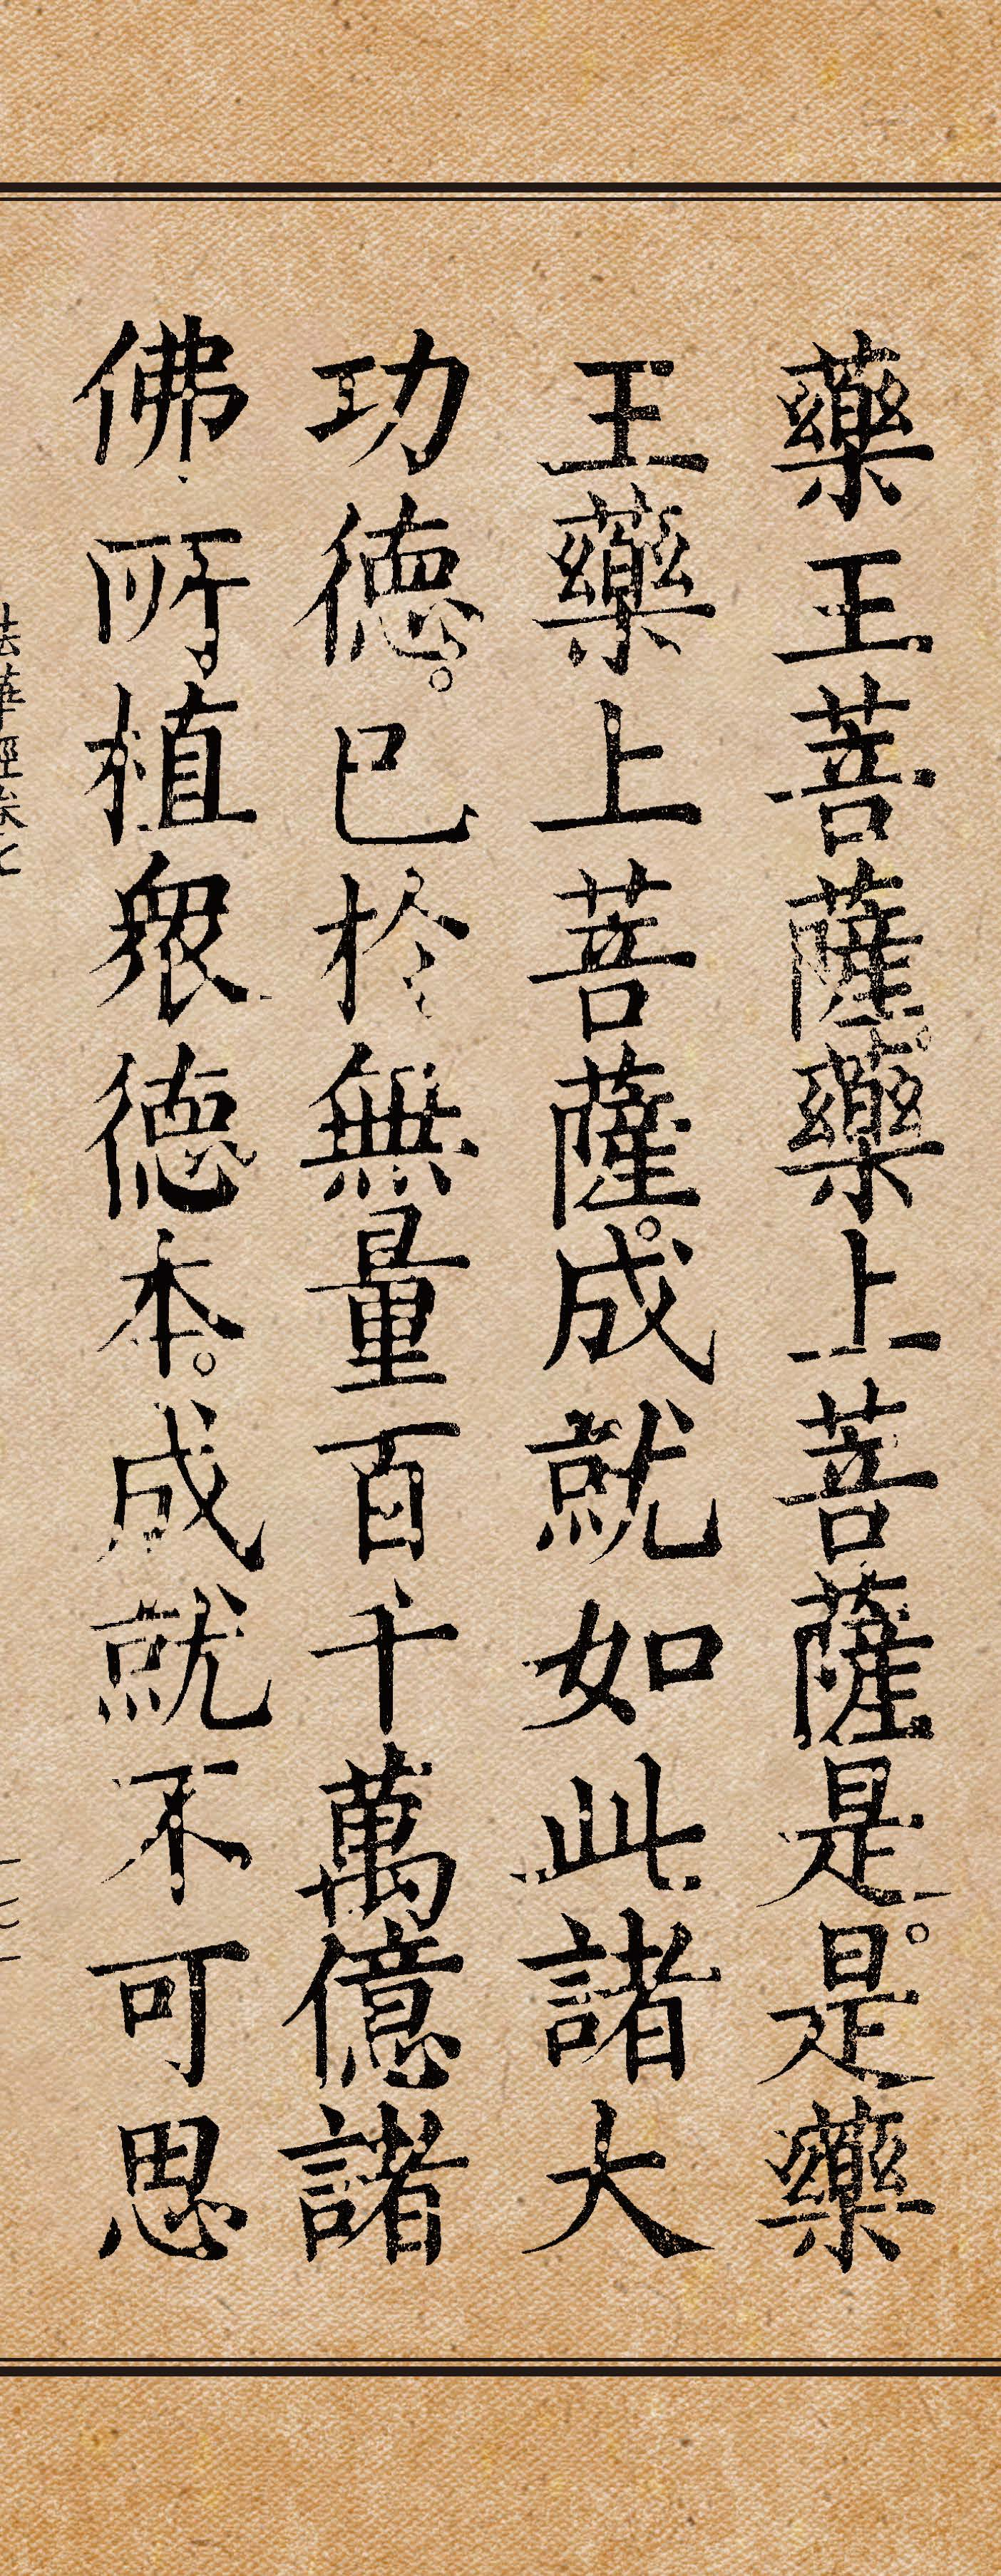 藥王菩薩。藥上菩薩是。是藥
王藥上菩薩。成就如此諸大
功德。已於無量百千萬億諸
佛所植眾德本。成就不可思
法華經卷七